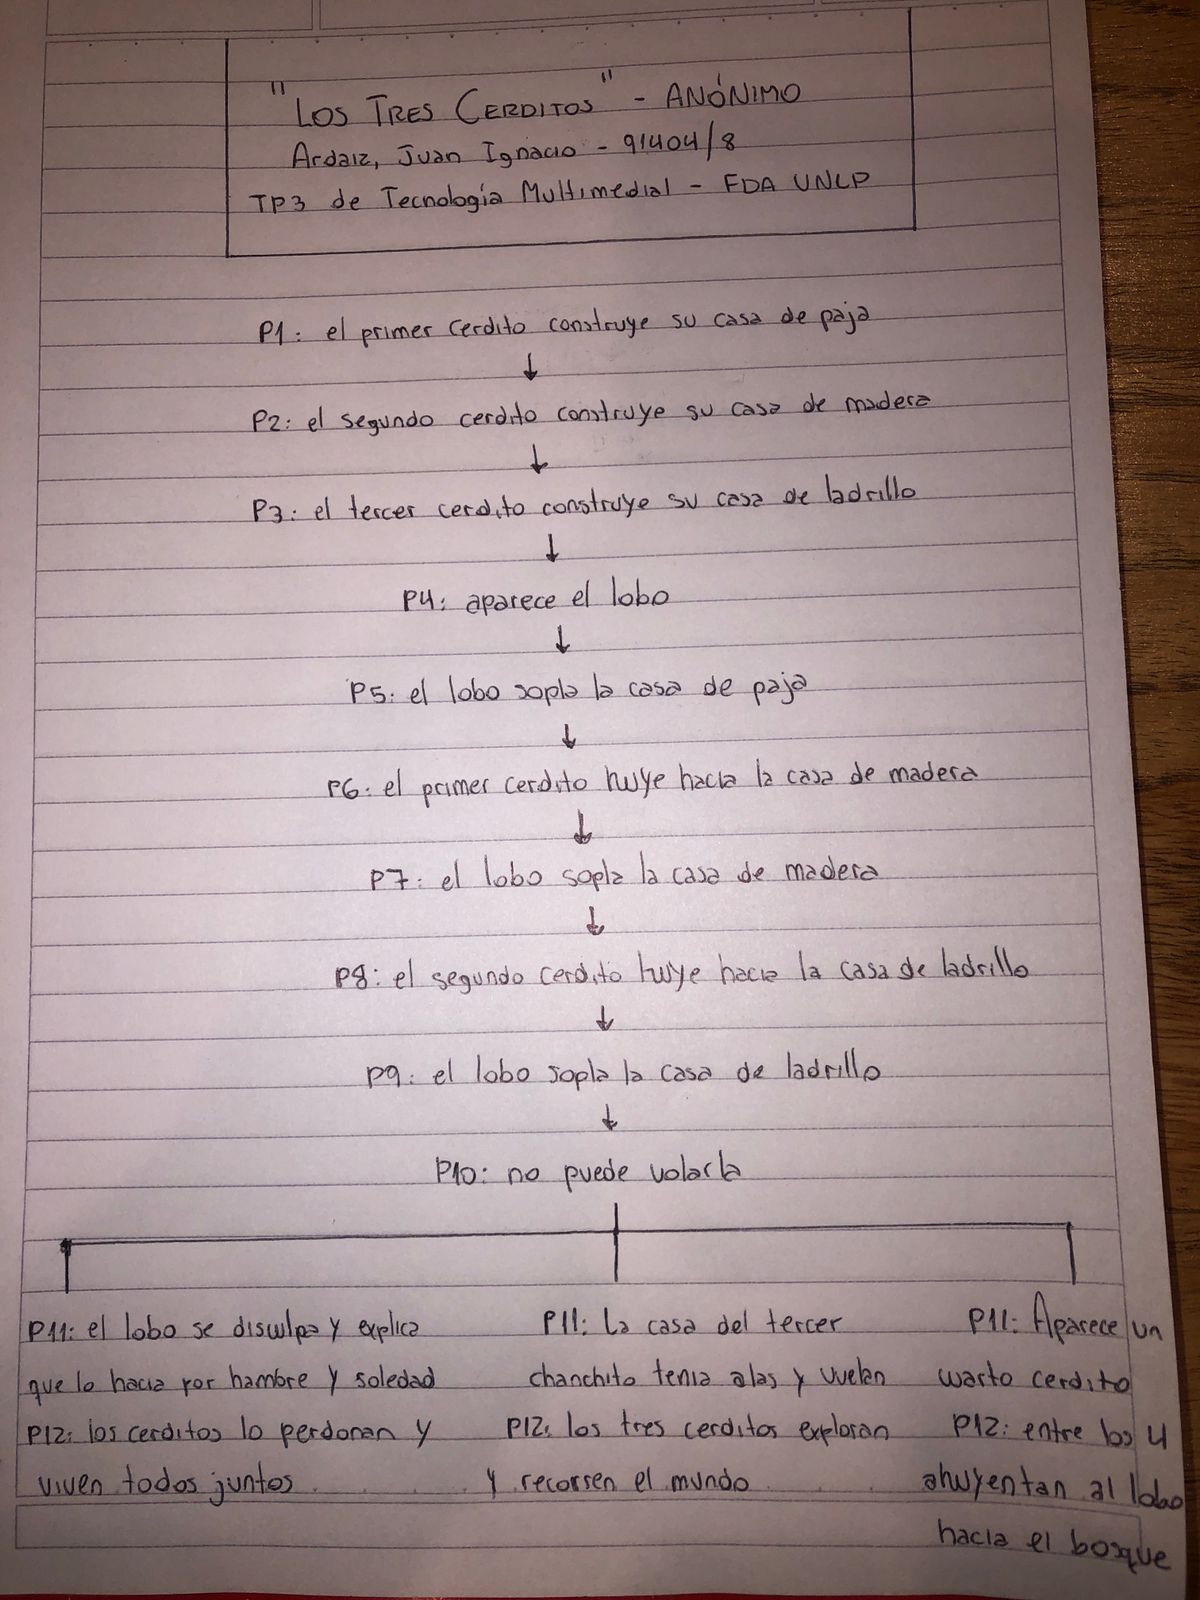 "LOS TRES CERDITOS" - ANÓNIMO
Ardaiz, Juan Ignacio - 91404/8
TP3 de Tecnología Multimedial - FDA UNLP
P1: el primer cerdito construye su casa de paja
↓
P2: el segundo cerdito construye su casa de madera
↓
P3: el tercer cerdito construye su casa de ladrillo
↓
P4: aparece el lobo
↓
P5: el lobo sopla la casa de paja
↓
P6: el primer cerdito huye hacia la casa de madera
↓
P7: el lobo sopla la casa de madera
↓
P8: el segundo cerdito huye hacia la casa de ladrillo
↓
P9: el lobo sopla la casa de ladrillo
↓
P10: no puede volarla
P11: el lobo se disculpa y explica
que lo hacia por hambre y soledad
P12: los cerditos lo perdonan y
viven todos juntos
P11: La casa del tercer
chanchito tenia alas y vuelan
P12: los tres cerditos exploran
y recorren el mundo
P11: Aparece un
cuarto cerdito
P12: entre los 4
ahuyentan al lobo
hacia el bosque